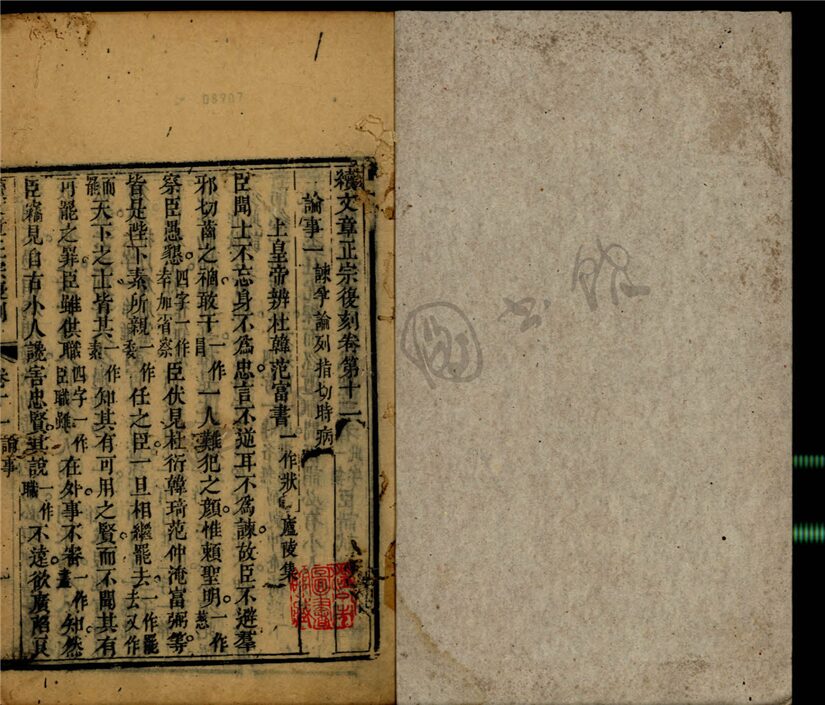 08907
續文章正宗復刻卷第十二
論事一 諫爭論列指切時病
上皇帝辨杜韓范富書 一作狀 廬陵集
臣聞士不忘身不爲忠言不逆耳不爲諫故臣不避羣
邪切齒之禍敢干一作冒一人難犯之顏惟賴聖明一作慈
察臣愚懇四字一作幸加省察臣伏見杜衍韓琦范仲淹富弼等
皆是陛下素所親一作委任之臣一旦相繼罷去一作罷去又作
而罷天下之士皆共一作素知其有可用之賢而不聞其有
可罷之罪臣雖供職四字一作臣職雖在外事不審一作盡知然
臣竊見自古小人讒害忠賢其說一作識不遠欲廣陷良
卷十二 論事